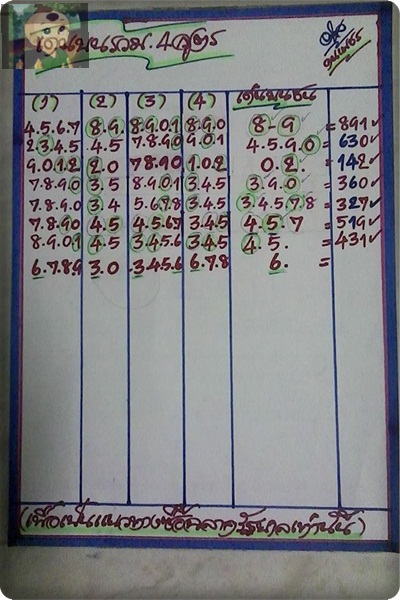 เด่นบนรวม.4สูตร
(1) (2) (3) (4) เด่นบนชน
4.5.6.7 8.9. 8.9.0.1 8.9.0 8-9 =891✓
2.3.4.5 4.5 7.8.9.0 9.0.1 4.5.9.0 =630✓
9.0.1.2 2.0 7.8.9.0 1.0.2 0.2. =142✓
7.8.9.0 3.5 8.9.0.1 3.4.5 3.9.0 =360✓
7.8.9.0 3.4 5.6.7.8 3.4.5 3.4.5.7.8 =327✓
7.8.9.0 4.5 4.5.6.7 3.4.5 4.5.7 =519✓
8.9.0.1 4.5 3.4.5.6 3.4.5 4.5. =431✓
6.7.8.9 3.0 3.4.5.6 6.7.8 6. =
(เพื่อเป็นแนวทางซื้อสลากรัฐบาลเท่านั้น)